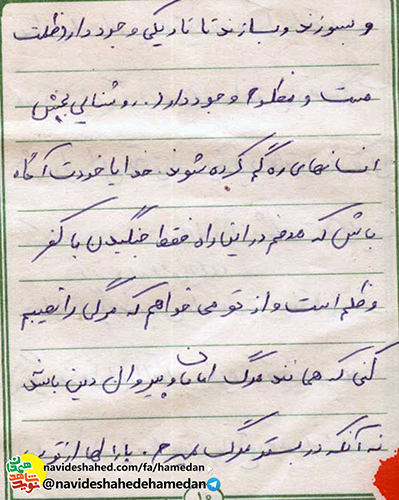 و بسوزند و بسازند تا تاریکی وجود دارد ظلمت
هست و مظلوم وجود دارد. روشنایی بخش
انسانهای ره گم کرده شوند. خدایا خودت آگاه
باش که هدفم در این راه فقط جنگیدن با کفر
و ظلم است و از تو می خواهم که مرگی را نصیبم
کنی که همانند مرگ امامان و پیروان دین باشد
نه آنکه در بستر مرگ بمیرم. بارالها از تو
navideshahed.com/fa/hamedan
@navideshahedehamedan
۱۰